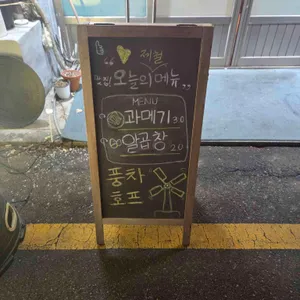 제철
맛집 "오늘의 메뉴"
MENU
과메기 3.0
알곱창 2.0
풍차
호프